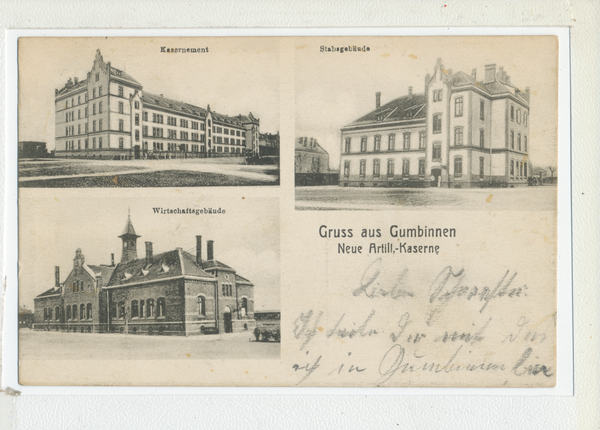 Kasernement
Stabsgebäude
Wirtschaftsgebäude
Gruss aus Gumbinnen
Neue Artill.-Kaserne
Liebe Schwester
Ich teile Dir mit das
ich in Gumbinnen bin